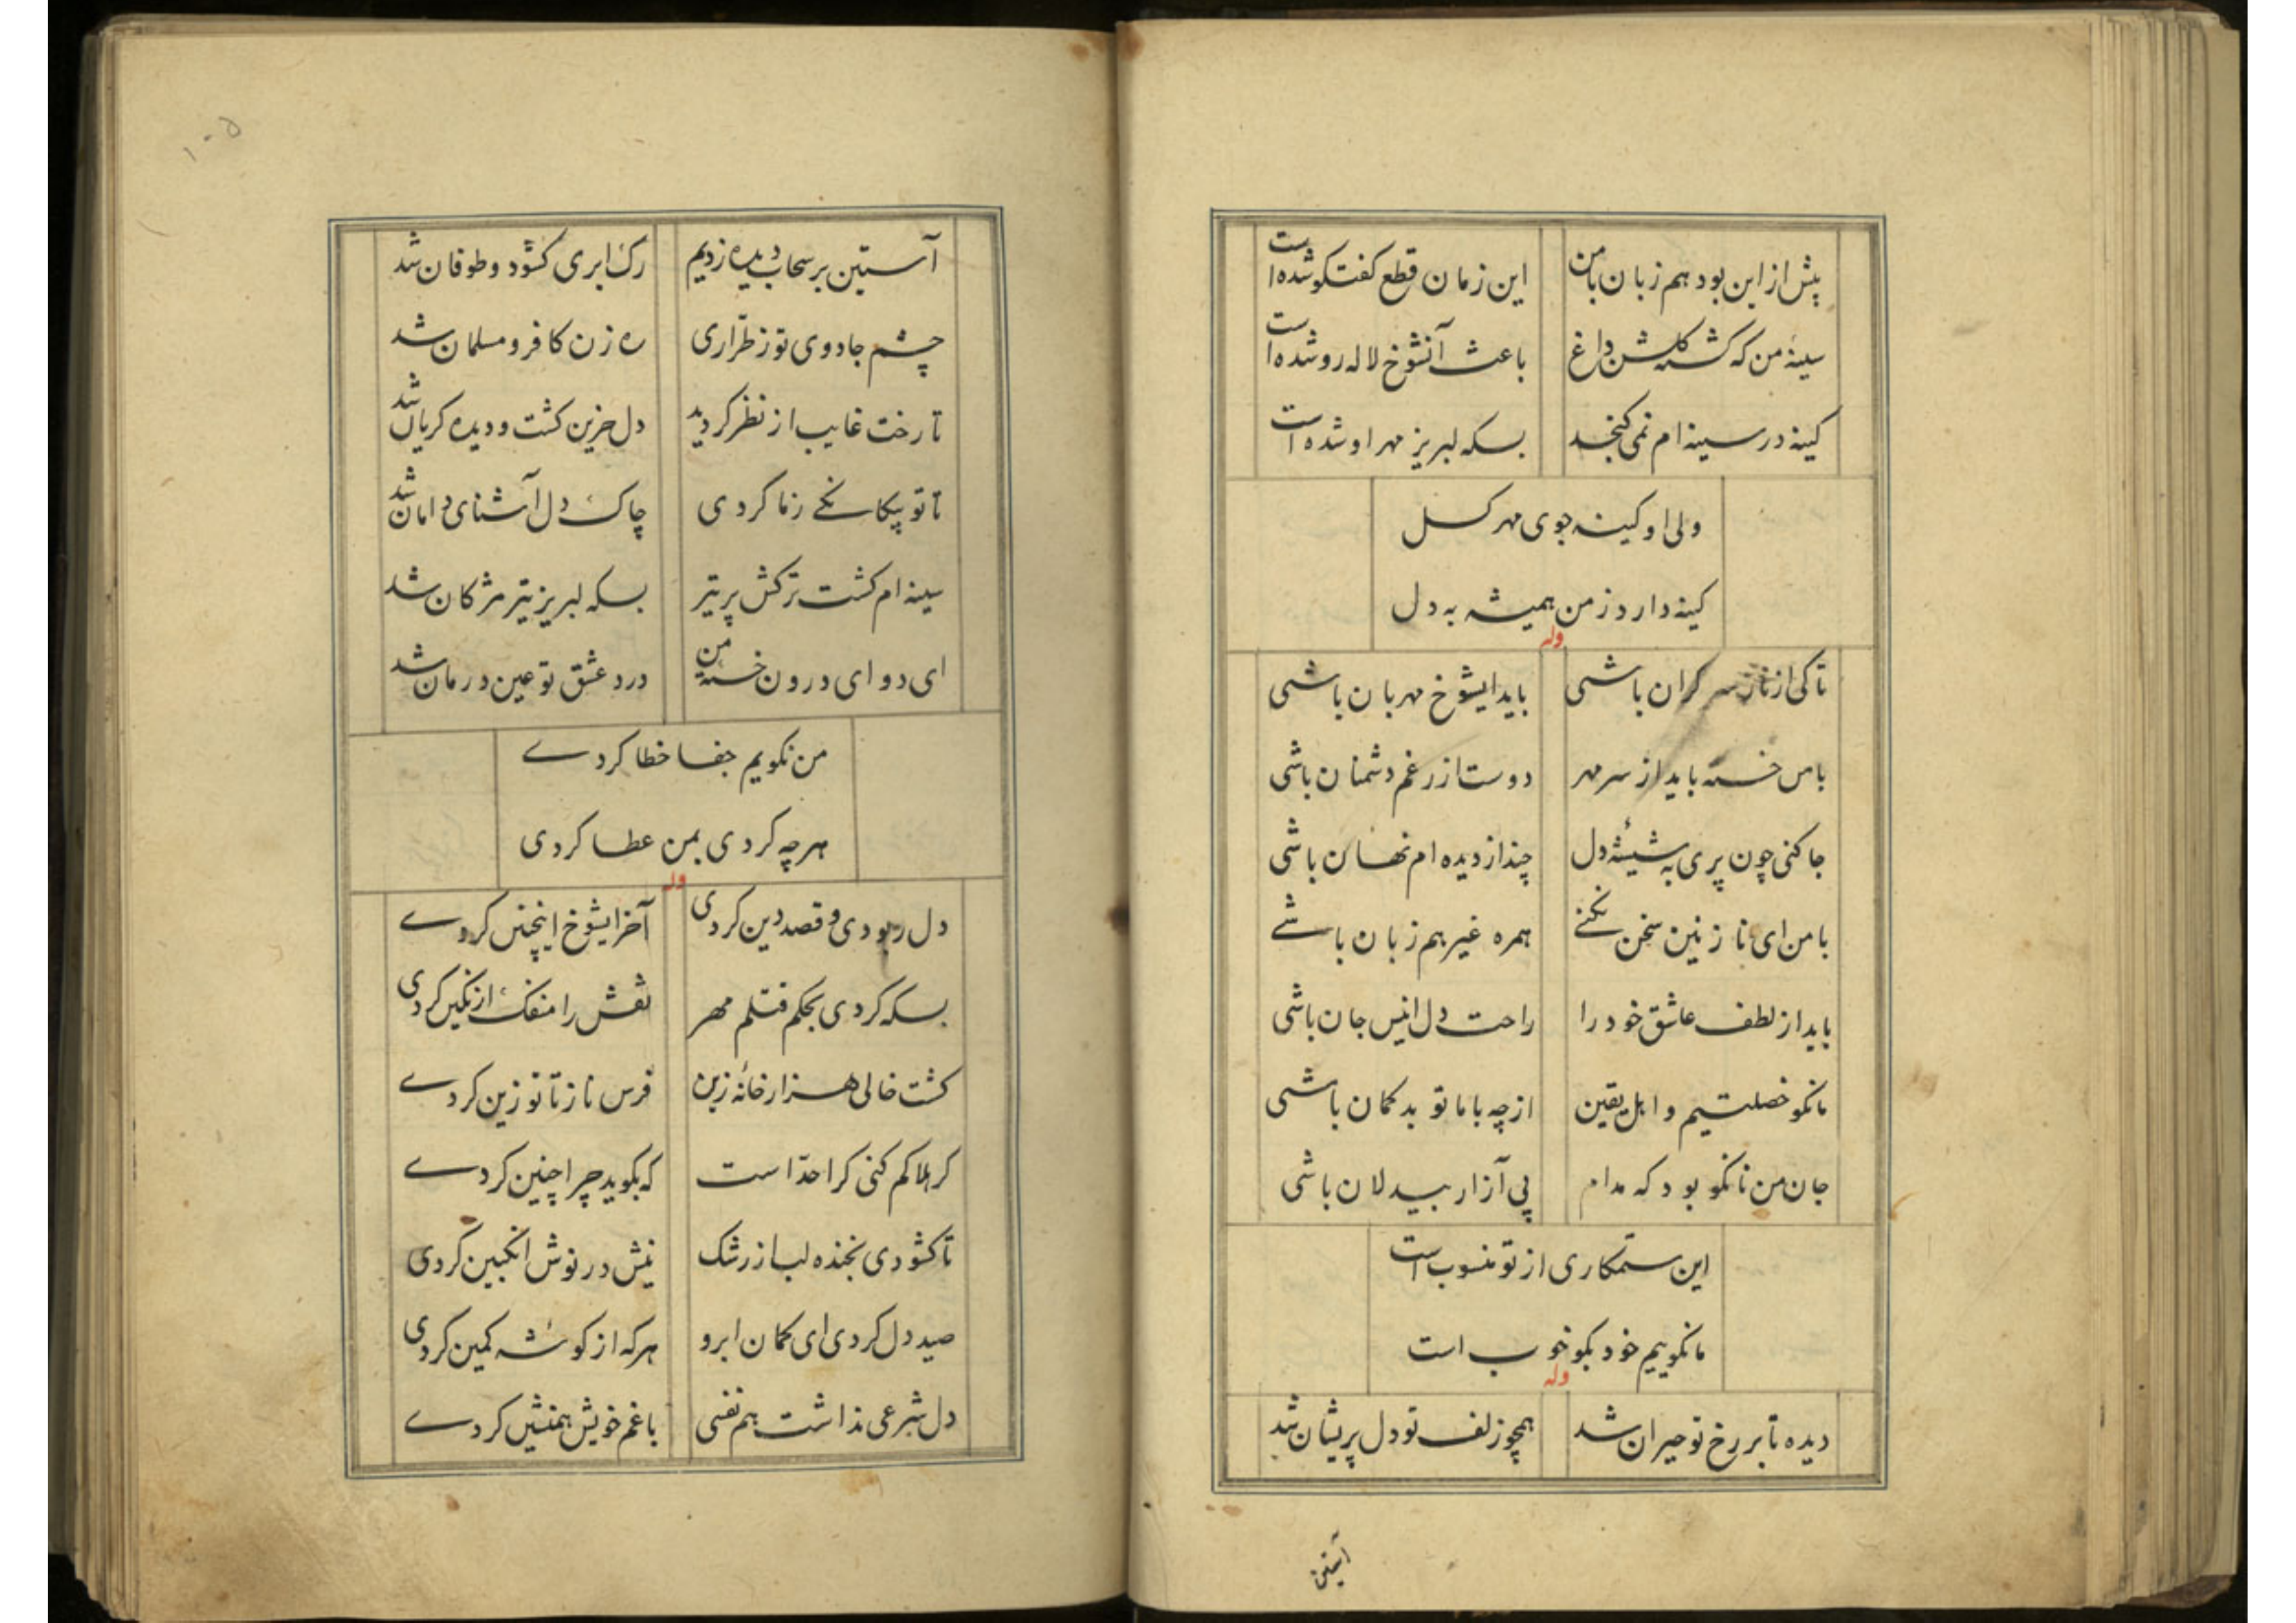 پیش از این بود هم زبان با من این زمان قطع کفتکو شده است
سینهٔ من که کشته کلشن داغ باعث آنشوخ لاله رو شده است
کینه در سینه ام نمی کنجد بسکه لبریز مهر او شده است
ولی او کینه جوی مهر کسل
کینه دارد ز من همیشه به دل
وله
تا کی از ناز سر کران باشی باید ایشوخ مهربان باشی
با من خسته باید از سر مهر دوست از رغم دشمنان باشی
جا کنی چون پری به شیشهٔ دل چند از دیده ام نهان باشی
با من ای نازنین سخن نکنی همره غیر هم زبان باشی
باید از لطف عاشق خود را راحت دل انیس جان باشی
ما نکو خصلتیم و اهل یقین از چه با ما تو بد کمان باشی
جان من نا نکو بود که مدام پی آزار بیدلان باشی
این ستمکاری از تو منسوب است
ما نکوییم خود بکو خوب است
وله
دیده تا بر رخ تو حیران شد همچو زلف تو دل پریشان شد
آستین
۱۰۵
آستین بر سحاب دیده زدیم رک ابری کشود و طوفان شد
چشم جادوی تو ز طراری ره زن کافر و مسلمان شد
تا رخت غایب از نظر کردید دل حزین کشت و دیده کریان شد
تا تو پیکانکی ز ما کردی چاک دل آشنای دامان شد
سینه ام کشت ترکش پر تیر بسکه لبریز تیر مژکان شد
ای دوای درون خستهٔ من درد عشق تو عین درمان شد
من نکویم جفا خطا کردی
هر چه کردی بمن عطا کردی
وله
دل ربودی و قصد دین کردی آخر ایشوخ اینچنین کردی
بسکه کردی بحکم قتلم مهر نقش را منفک از نکین کردی
کشت خالی هزار خانهٔ زین فرس ناز تا تو زین کردی
کر هلاکم کنی کرا حد است که بکوید چرا چنین کردی
تا کشودی بخنده لب از رشک نیش در نوش انکبین کردی
صید دل کردی ای کمان ابرو هر که از کوشه کمین کردی
دل شرعی نداشت هم نفسی با غم خویش همنشین کردی